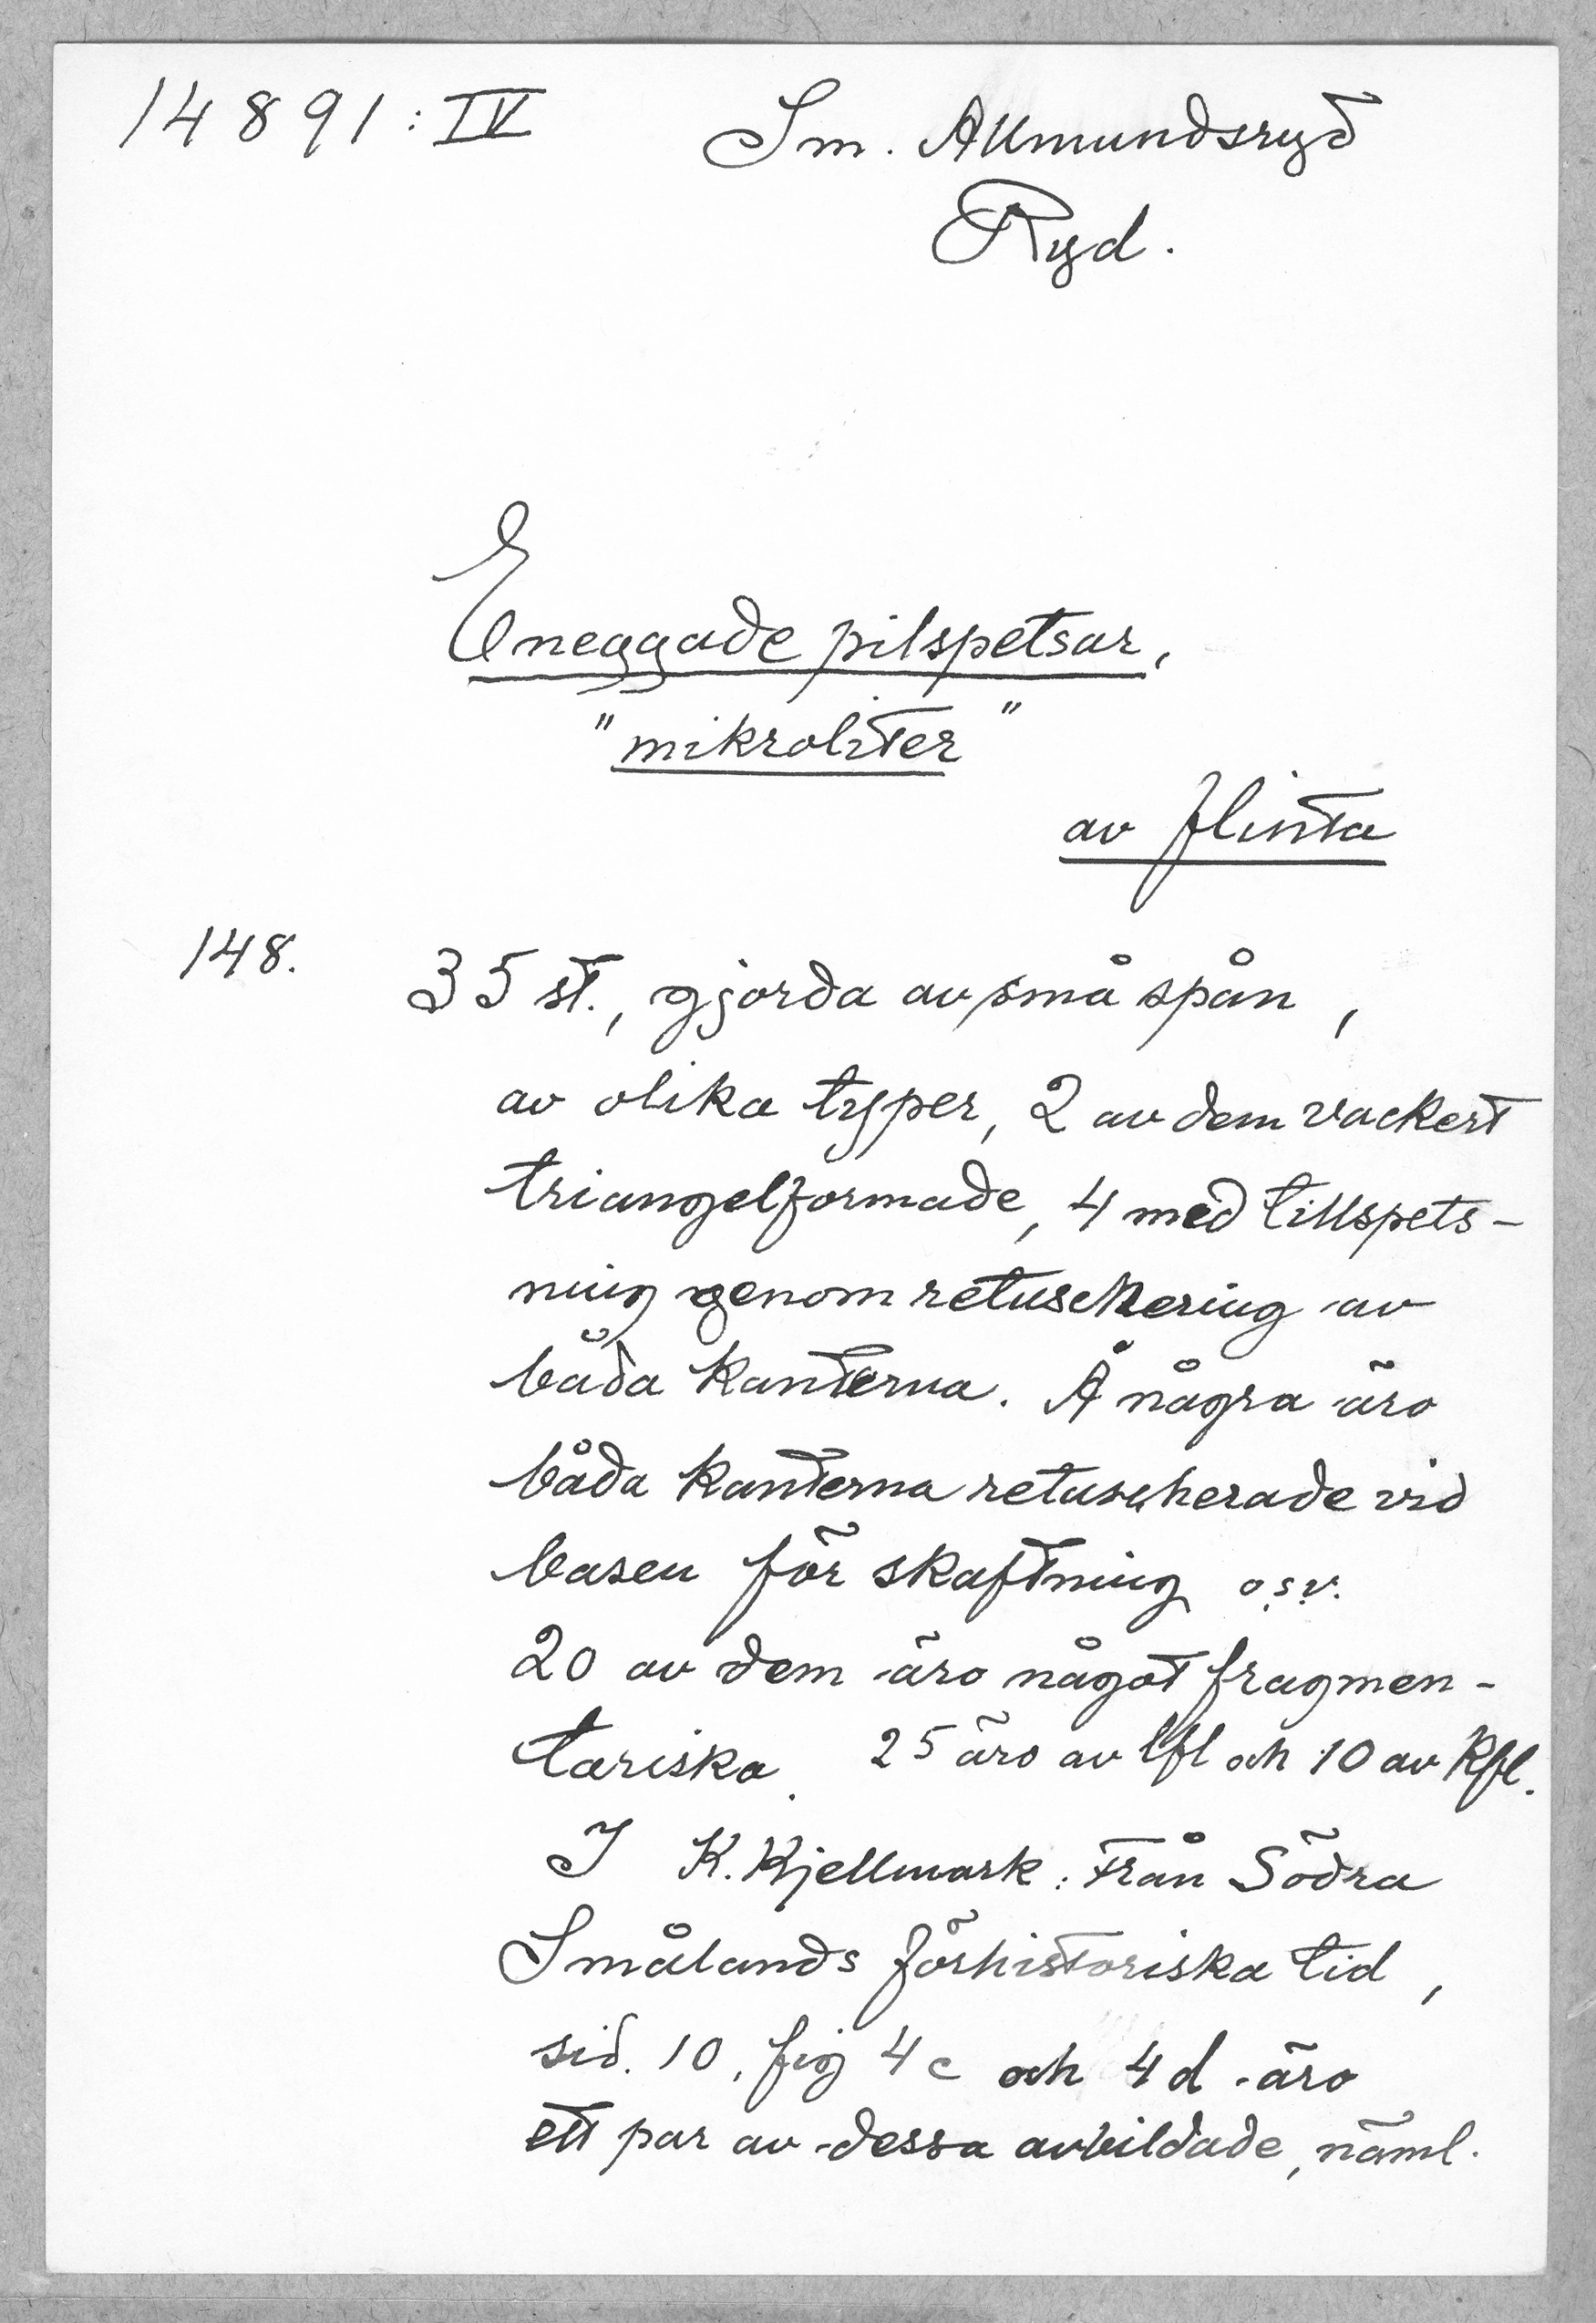 14891:IV
Sm. Allmundsryd
Ryd.
Eneggade pilspetsar,
"mikroliter"
av flinta
148. 35 st., gjorda av små spån,
av olika typer, 2 av dem vackert
triangelformade, 4 med tillspets-
ning genom retuschering av
båda kanterna. Å några äro
båda kanterna retuscherade vid
basen för skaftning o.s.v.
20 av dem äro något fragmen-
tariska. 25 äro av lfl och 10 av Kfl.
I K. Kjellmark: Från Södra
Smålands förhistoriska tid,
sid. 10, fig 4c och 4d äro
ett par av dessa avbildade, näml.